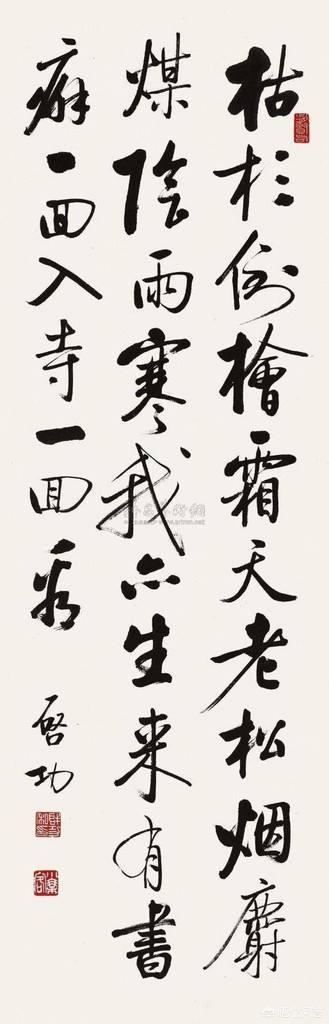 枯杉倒檜霜天老松烟麝
煤陰雨寒我亦生来有書
癖一回入寺一回看
啓功